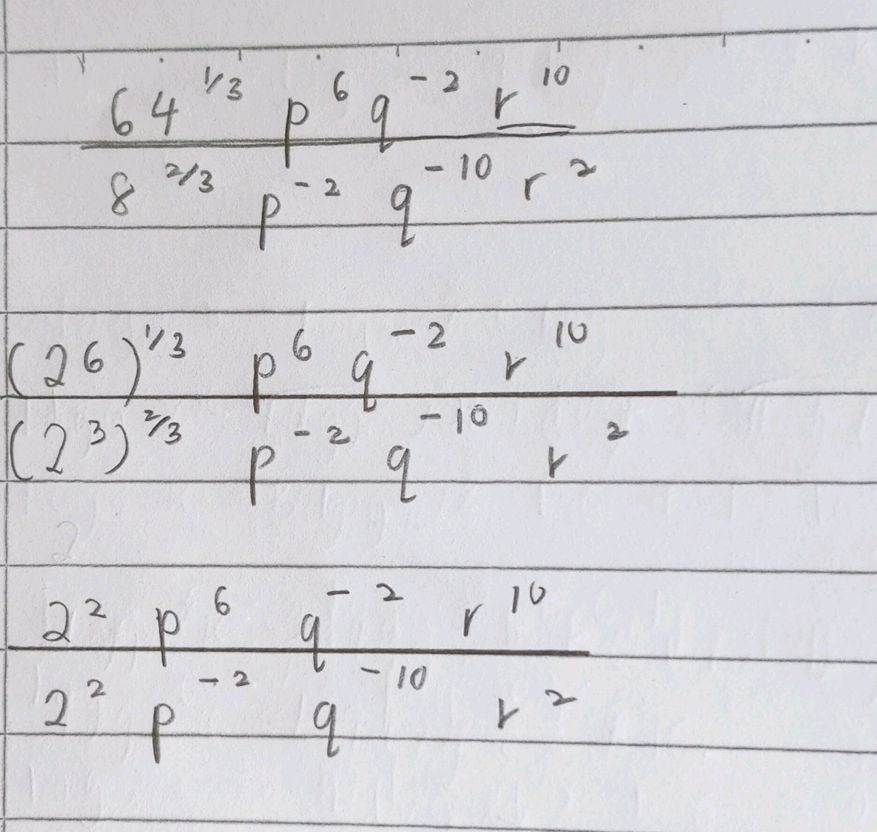 64^{1/3} p^6 q^{-2} r^{10}
8^{2/3} p^{-2} q^{-10} r^2
(2^6)^{1/3} p^6 q^{-2} r^{10}
(2^3)^{2/3} p^{-2} q^{-10} r^2
2^2 p^6 q^{-2} r^{10}
2^2 p^{-2} q^{-10} r^2